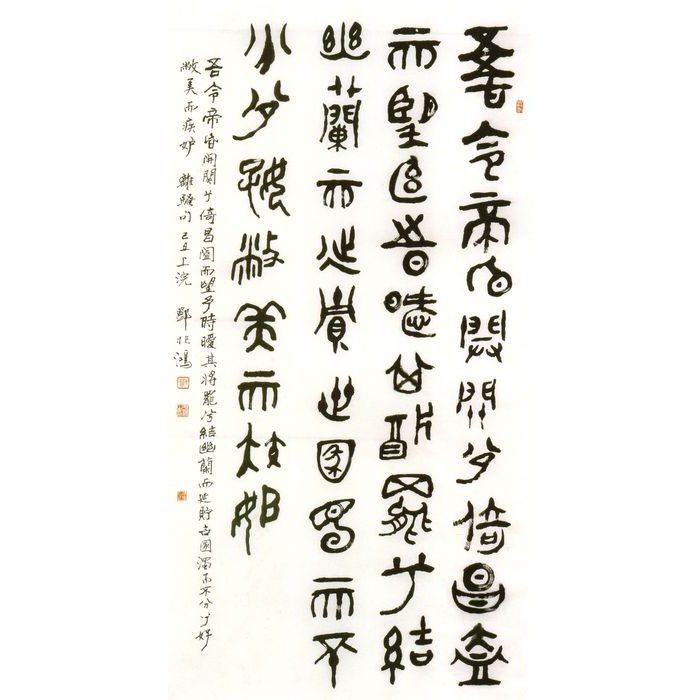 吾令帝昏開關兮倚昌盍
而望予時曖其將罷兮結
幽蘭而延貯世圂濁而不
分兮好敝美而疾妒
吾令帝昏開關兮倚昌闔而望予時曖其將罷兮結幽蘭而延貯世圂濁而不分兮好
敝美而疾妒 離騷句 己丑上浣 鄧鴻